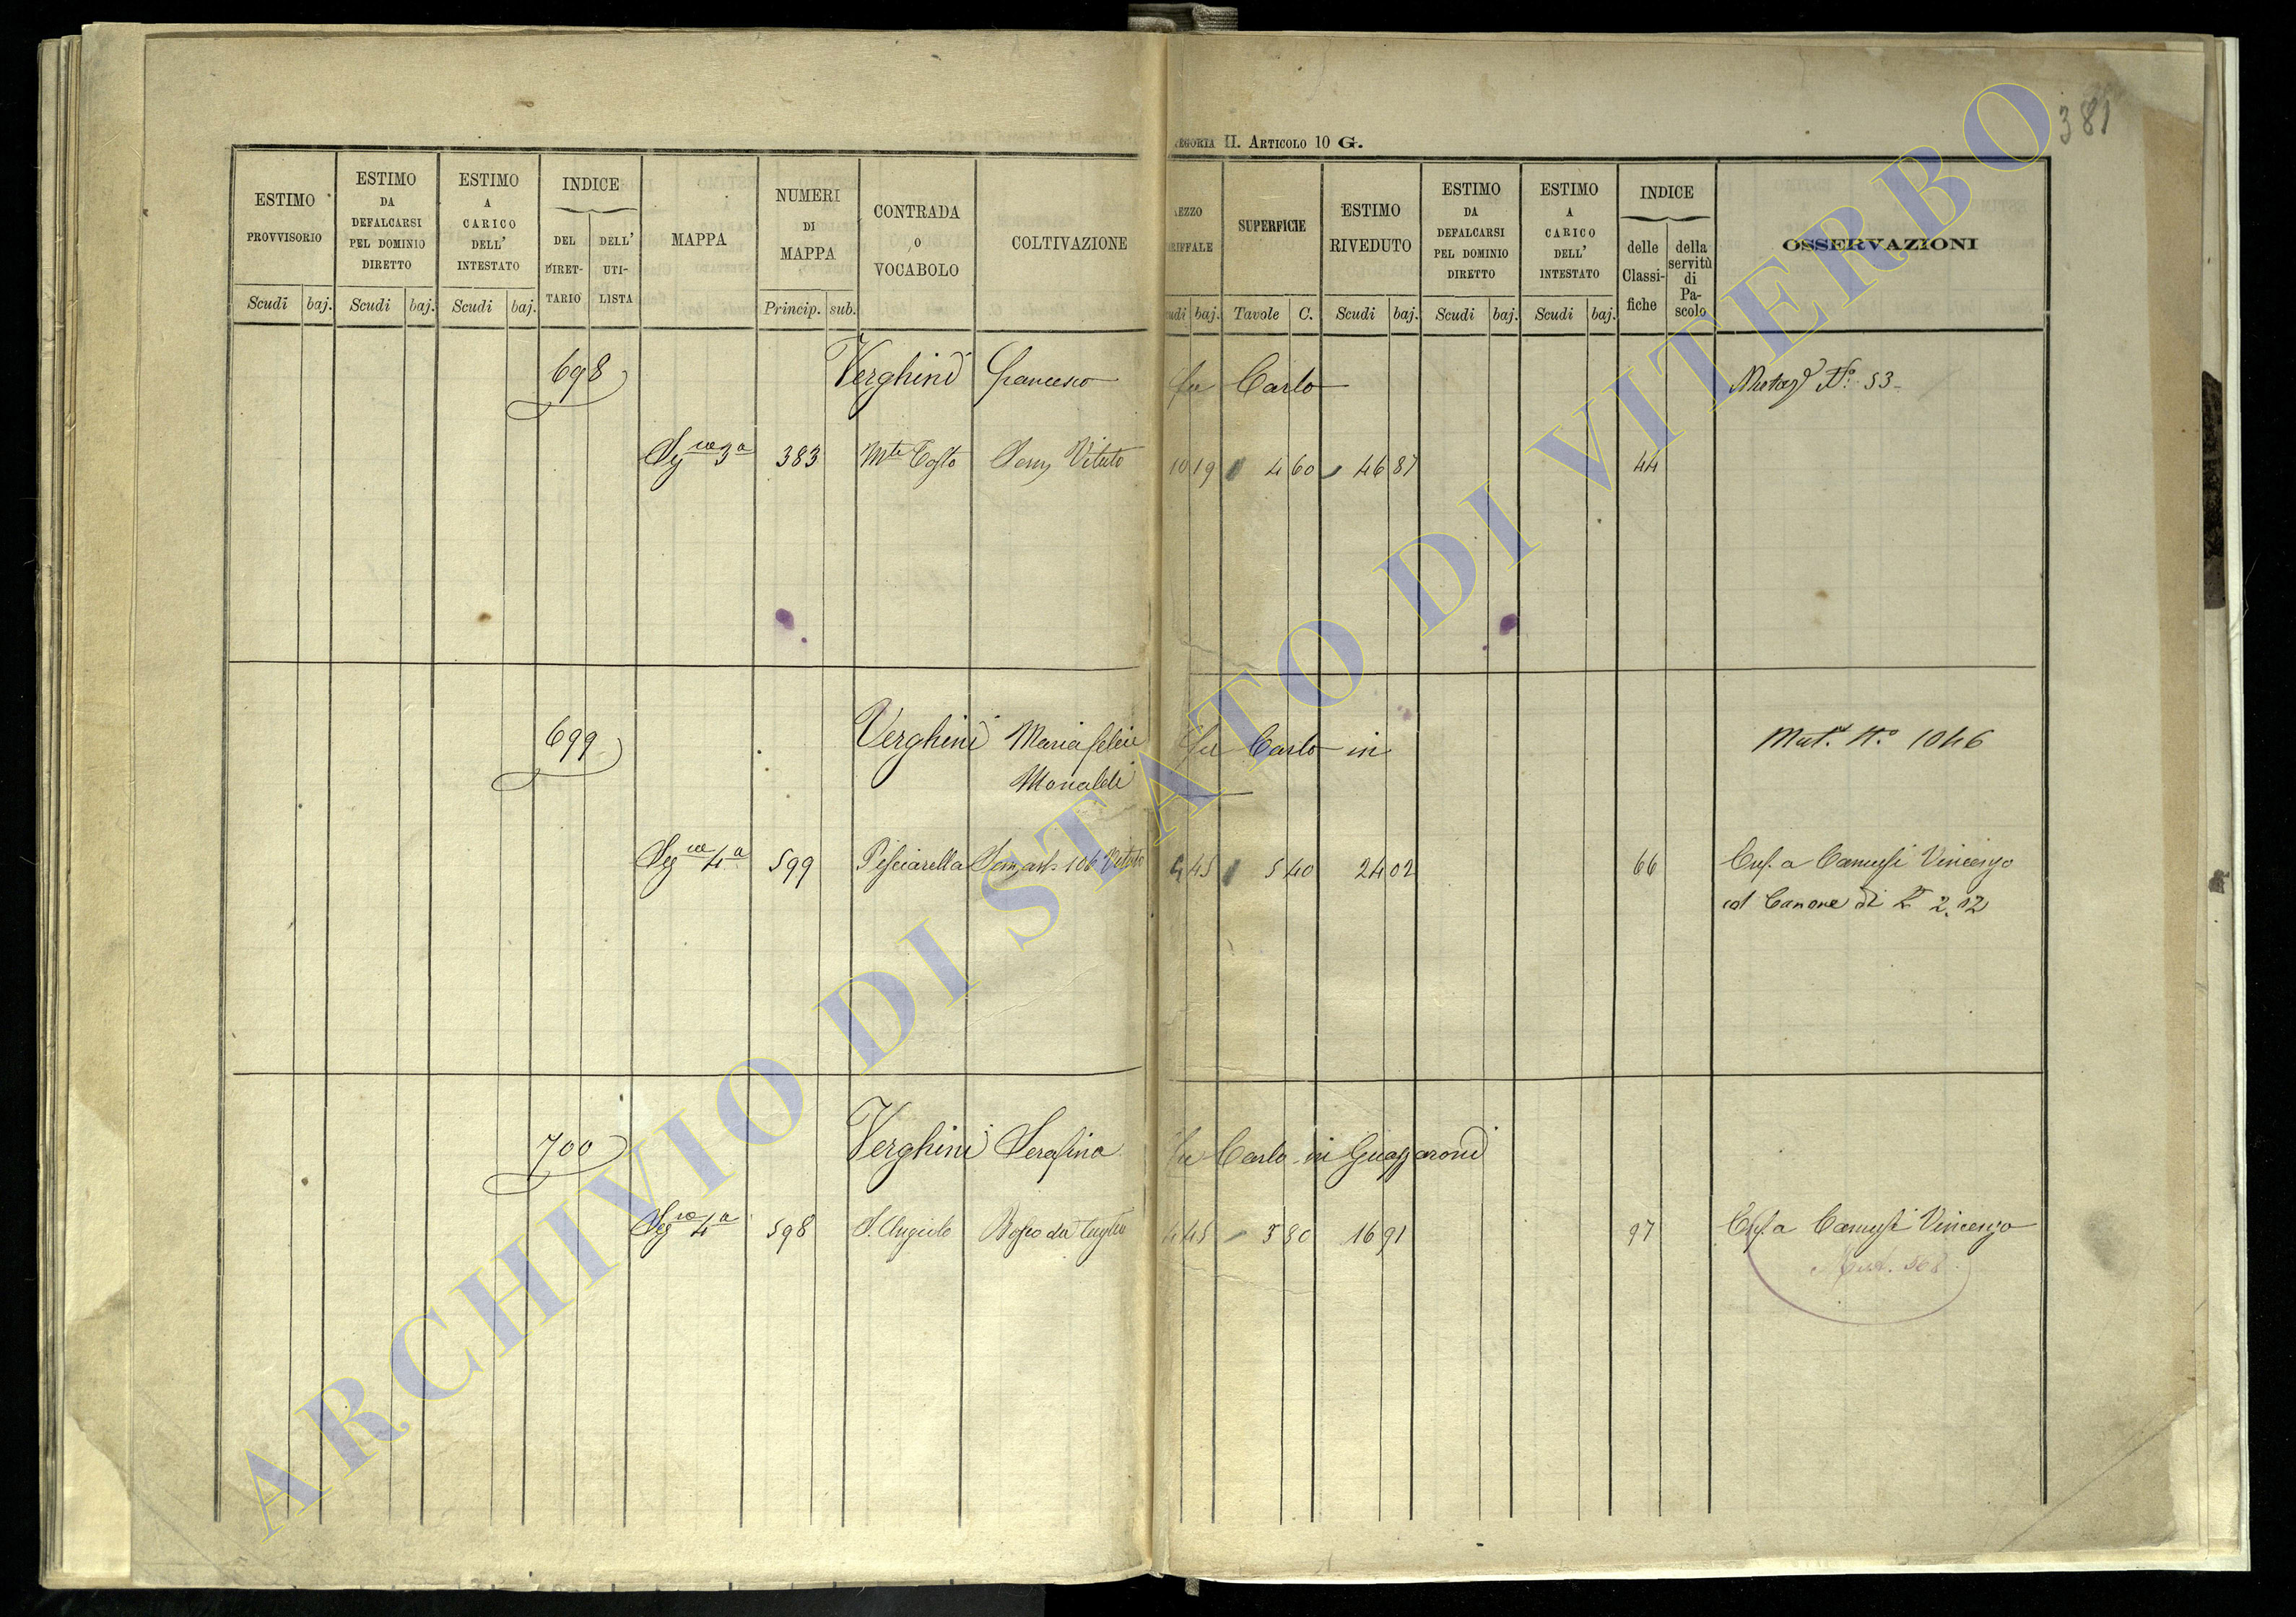 381
EGORIA II. ARTICOLO 10 G.
ESTIMO PROVVISORIO
Scudi baj.
ESTIMO DA DEFALCARSI PEL DOMINIO DIRETTO
Scudi baj.
ESTIMO A CARICO DELL' INTESTATO
Scudi baj.
INDICE
DEL DIRET-TARIO
DELL' UTI-LISTA
MAPPA
NUMERI DI MAPPA
Princip. sub.
CONTRADA O VOCABOLO
COLTIVAZIONE
EZZO RIFFALE
udi baj.
SUPERFICIE
Tavole C.
ESTIMO RIVEDUTO
Scudi baj.
ESTIMO DA DEFALCARSI PEL DOMINIO DIRETTO
Scudi baj.
ESTIMO A CARICO DELL' INTESTATO
Scudi baj.
INDICE
delle Classi-fiche
della servitù di Pa-scolo
OSSERVAZIONI
698 Verghini Francesco fu Carlo N.º 53
Segue 3a 383 Mte Vitato 10 19 4 60 46 87 44
699 Verghini Maria felice fu Carlo in Mut. N.º 1046
Monaldi
Segue 4a 599 Pesciarella Vitato 4 45 5 40 24 02 66 Enf. a Camusi Vincenzo
col Canone di 2.02
700 Verghini Serafina fu Carlo in Guazzaroni
Segue 4a 598 S. Angiolo Bosco da taglio 4 45 3 80 16 91 97 Enf. a Camusi Vincenzo
Mut. 568
ARCHIVIO DI STATO DI VITERBO